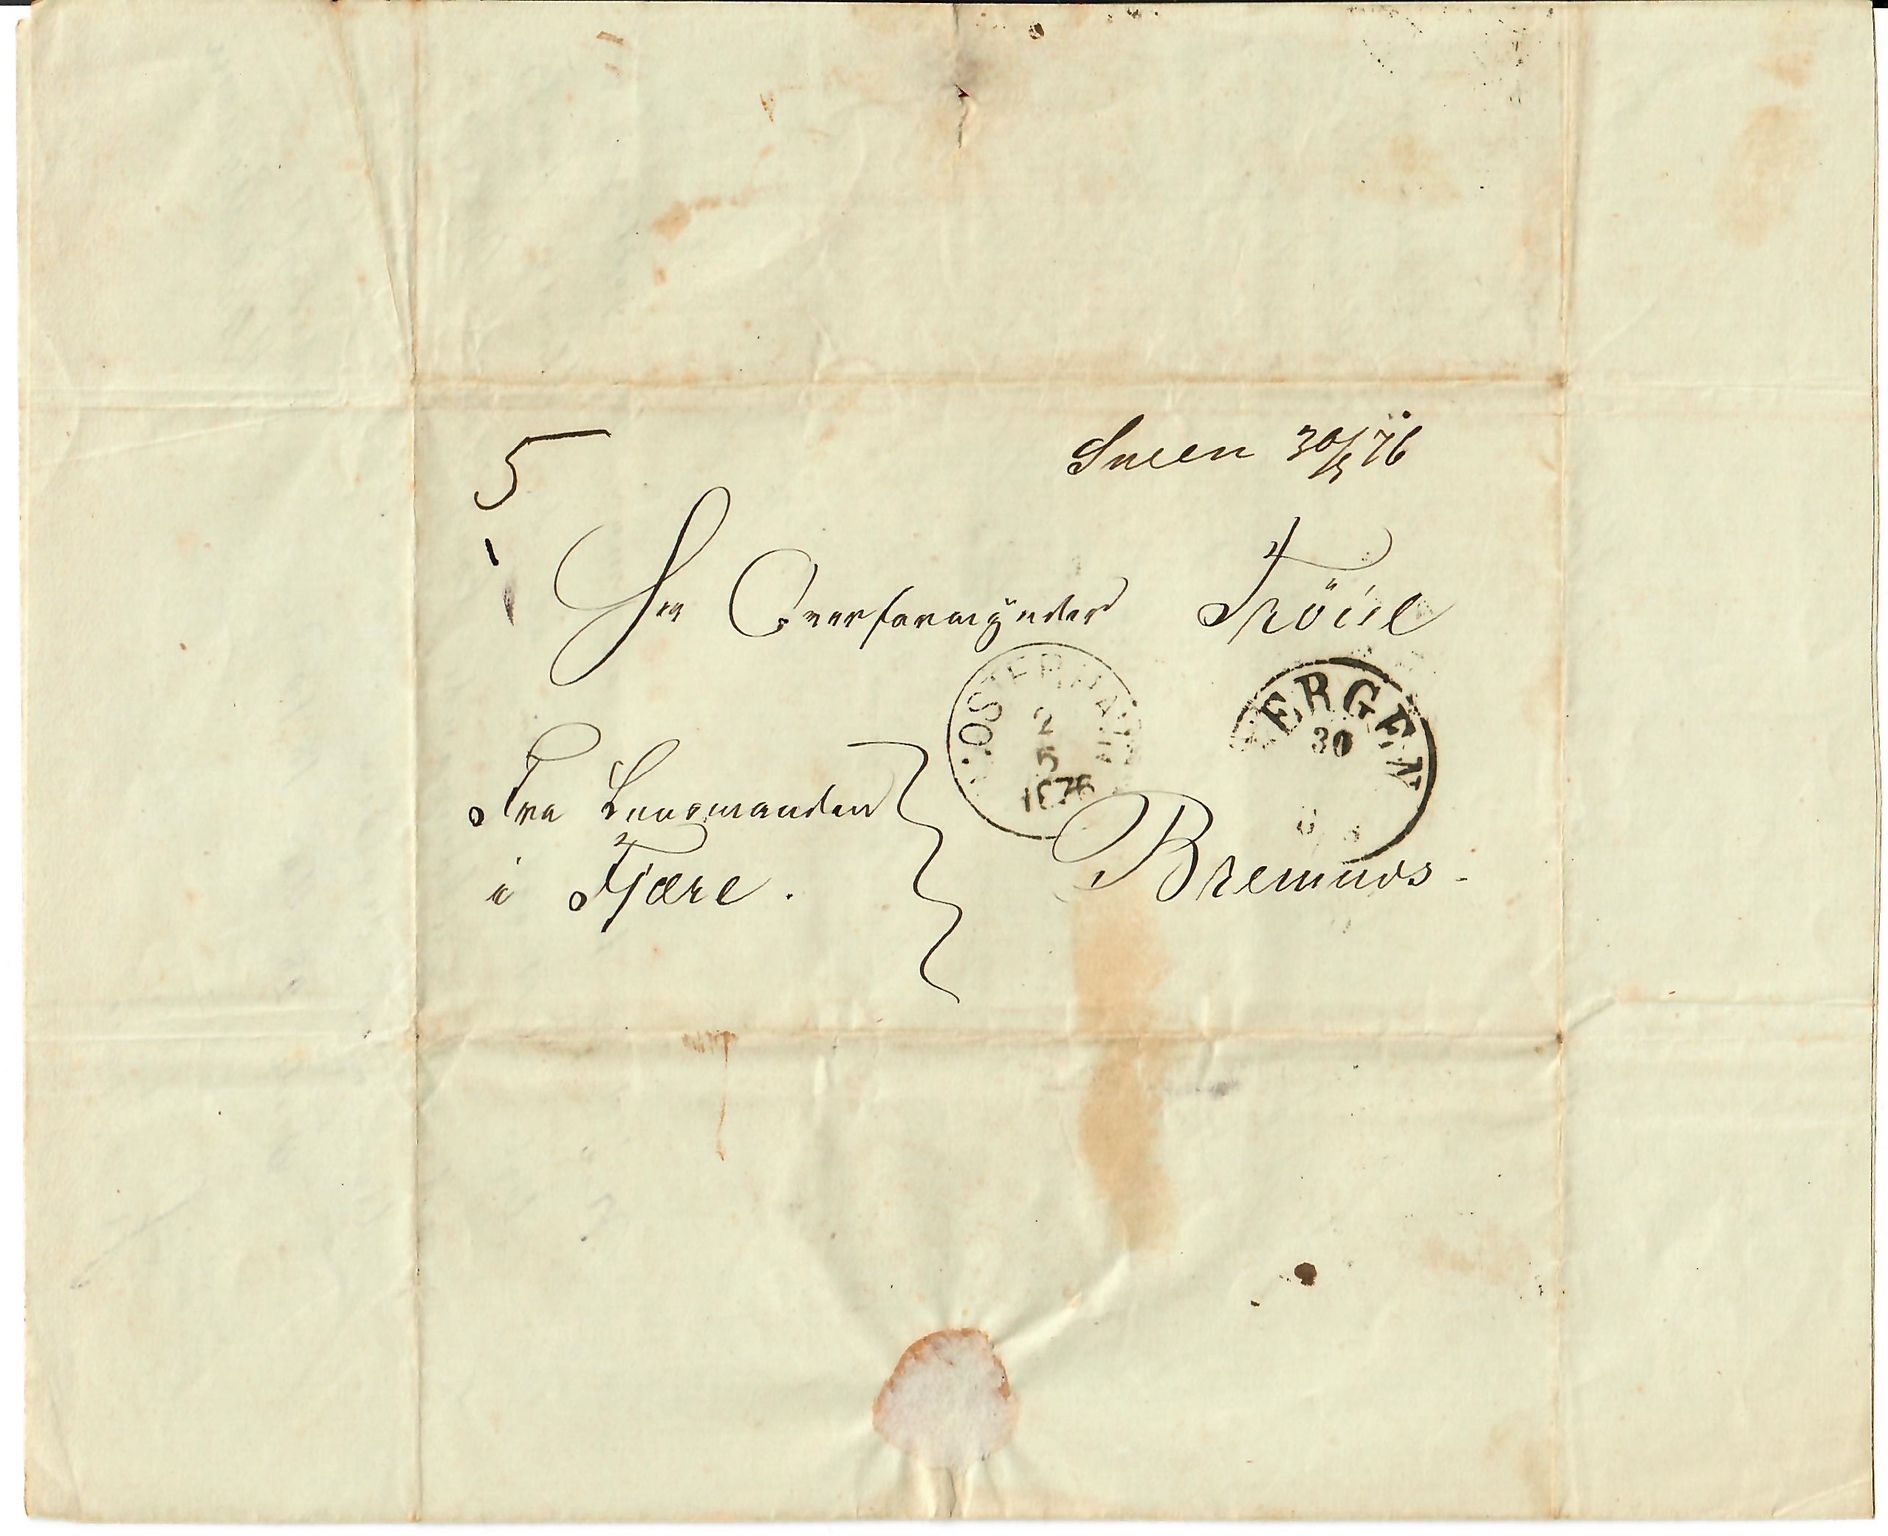 5
30/3 76
Hr Overformynder Tröue
OSTERHA
2
5
1876
BERGEN
30
Fra Lensmanden
i Fjære.
Bremnes.